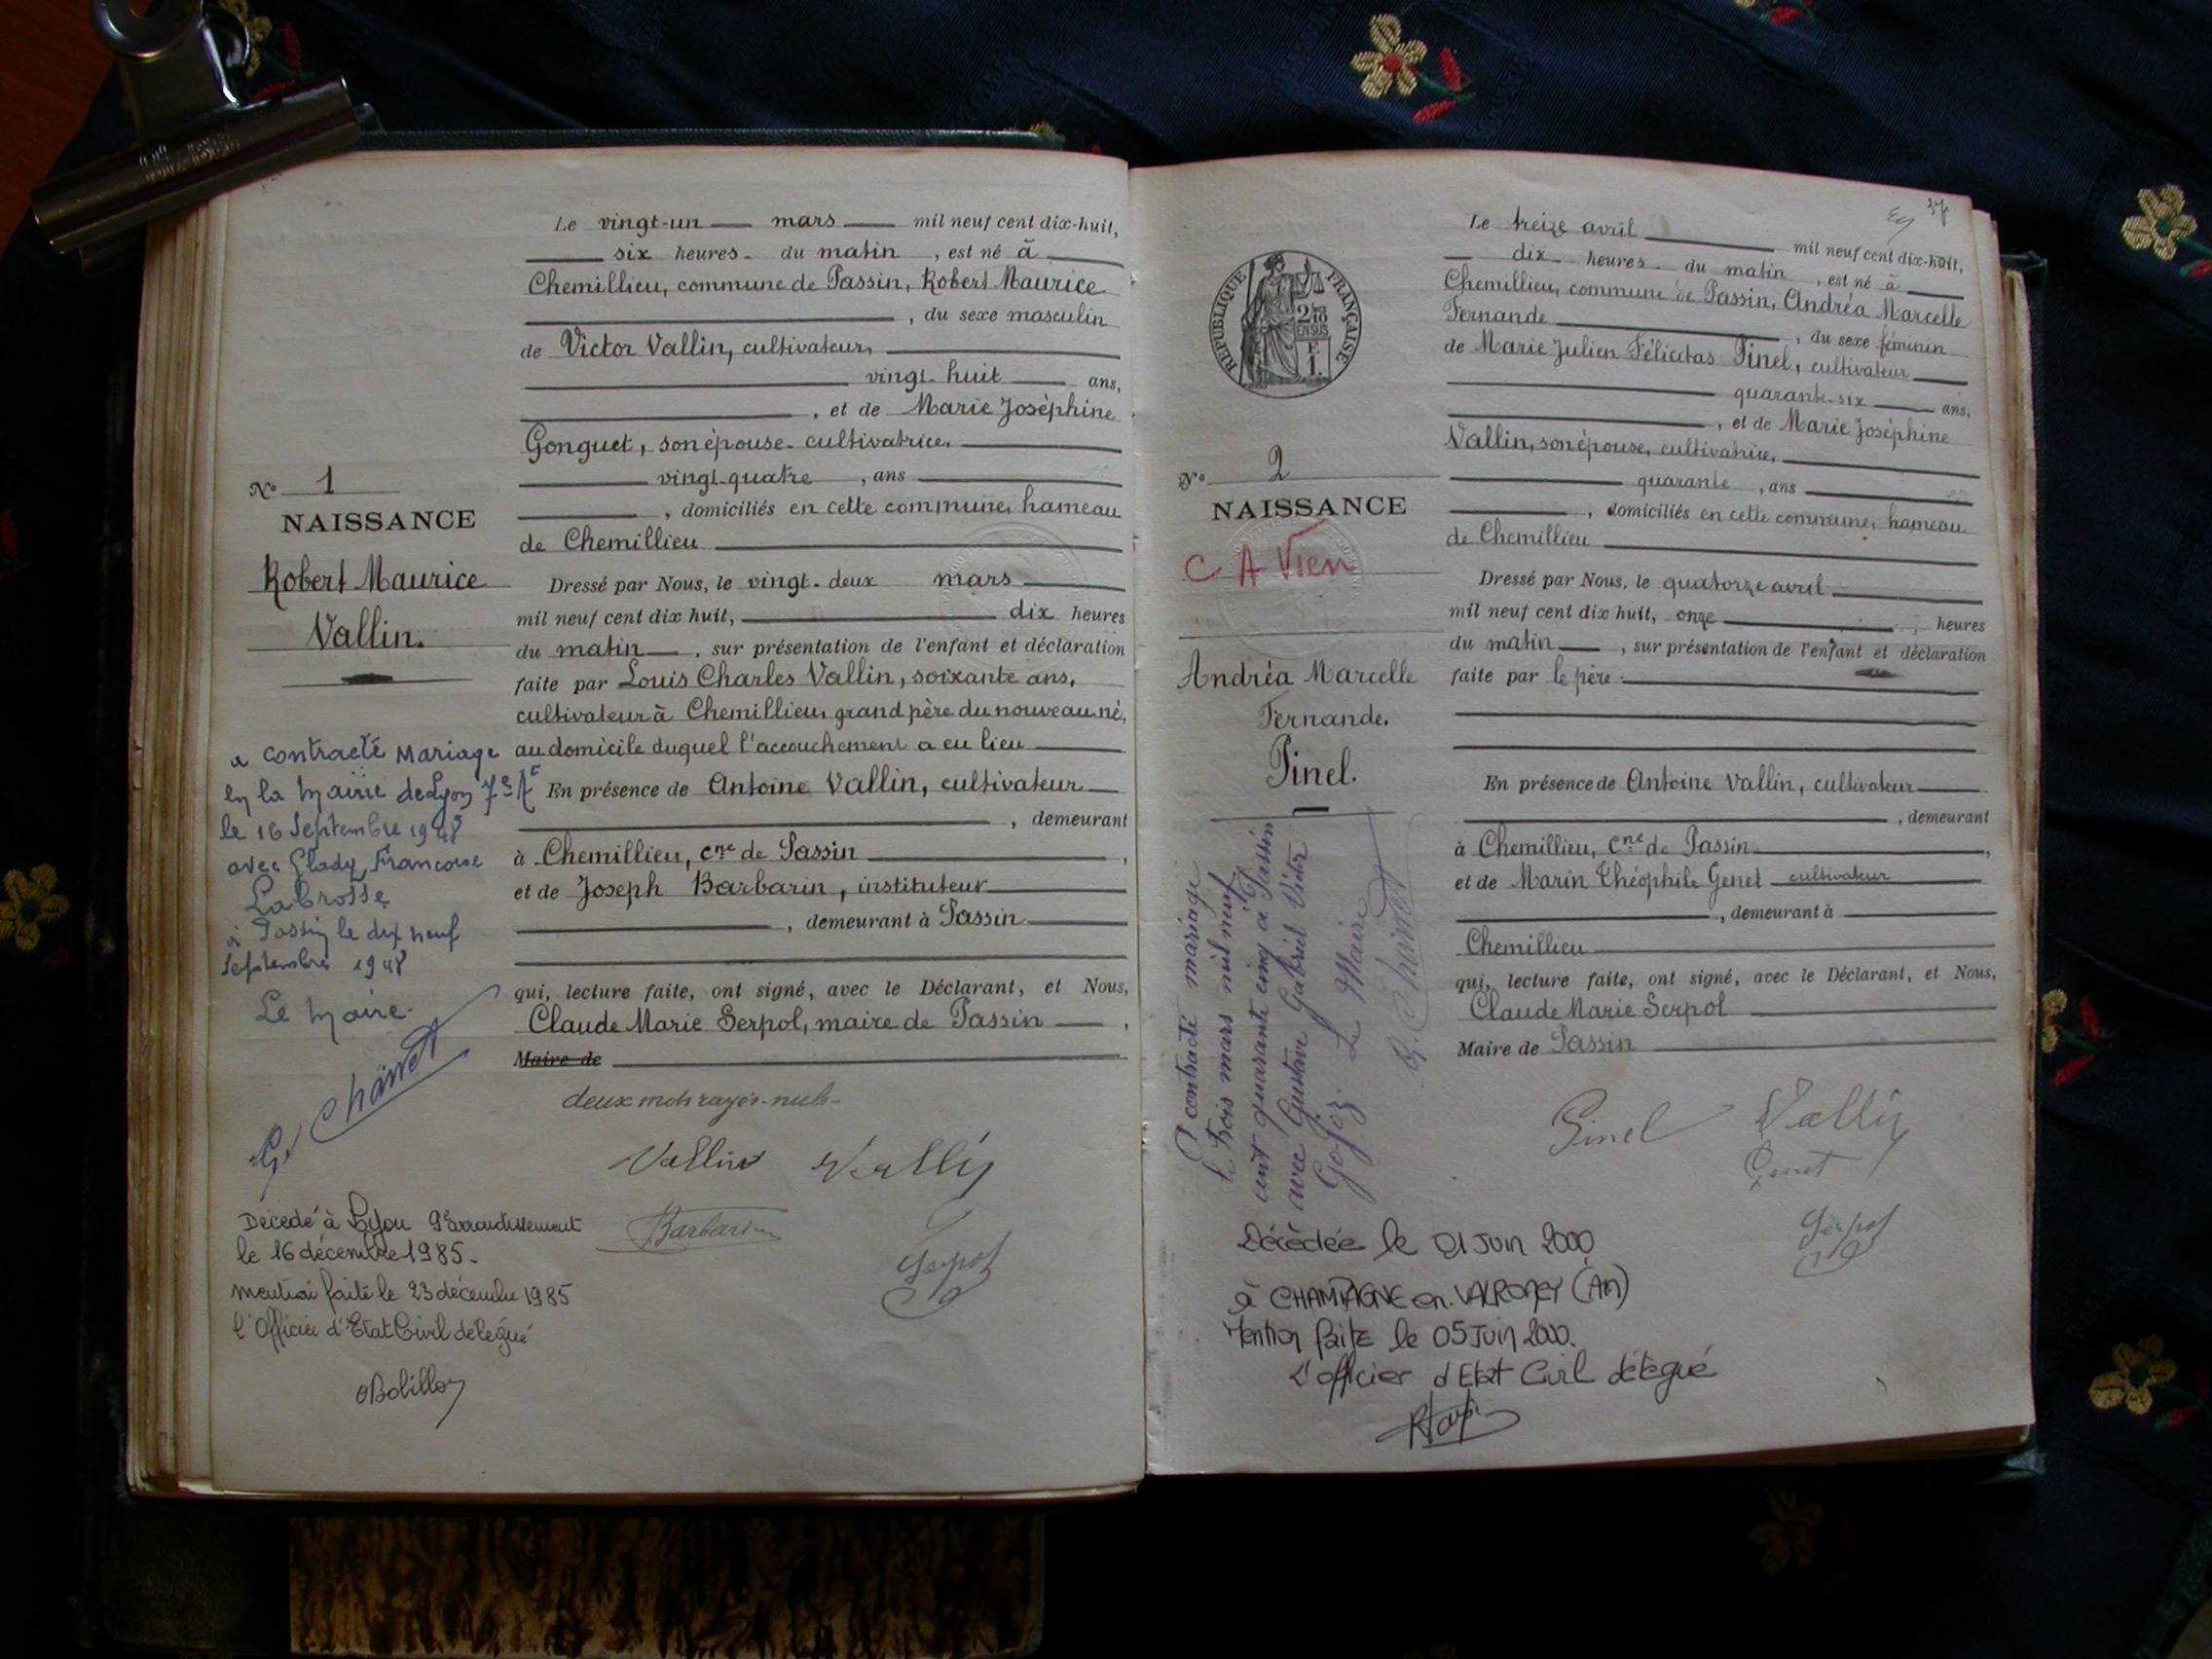 Le vingt-un mars mil neuf cent dix-huit,
six heures du matin, est né à
Chemillieu, commune de Passin, Robert Maurice
, du sexe masculin
de Victor Vallin, cultivateur,
vingt-huit ans,
, et de Marie Joséphine
Gonguet, son épouse - cultivatrice,
vingt-quatre, ans
, domiciliés en cette commune, hameau
de Chemillieu
Dressé par Nous, le vingt-deux mars
mil neuf cent dix huit, dix heures
du matin, sur présentation de l'enfant et déclaration
faite par Louis Charles Vallin, soixante ans,
cultivateur à Chemillieu, grand père du nouveau né,
au domicile duquel l'accouchement a eu lieu
En présence de Antoine Vallin, cultivateur
, demeurant
à Chemillieu, cne de Passin,
et de Joseph Barbarin, instituteur
, demeurant à Passin
qui, lecture faite, ont signé, avec le Déclarant, et Nous,
Claude Marie Serpol, maire de Passin,
Maire de
deux mots rayés nuls
Vallin Vallin
Barbarin
Serpol
No 1
NAISSANCE
Robert Maurice
Vallin.
a contracté mariage
en la mairie de Lyon 7e Ar
le 16 Septembre 1948
avec Glady Françoise
Labrosse
à Passin le dix neuf
Septembre 1948
Le Maire
G. Charvet
Décédé à Lyon 9e arrondissement
le 16 décembre 1985.
mention faite le 23 décembre 1985
l'Officier d'Etat Civil délégué
Bobillon
37
REPUBLIQUE FRANÇAISE
2/10
EN SUS
F.
1.
Le treize avril mil neuf cent dix-huit,
dix heures du matin, est né à
Chemillieu, commune de Passin, Andréa Marcelle
Fernande, du sexe féminin
de Marie Julien Félicitas Pinel, cultivateur
quarante-six ans,
, et de Marie Joséphine
Vallin, son épouse, cultivatrice,
quarante, ans
, domiciliés en cette commune, hameau
de Chemillieu
Dressé par Nous, le quatorze avril
mil neuf cent dix huit, onze heures
du matin, sur présentation de l'enfant et déclaration
faite par le père
En présence de Antoine Vallin, cultivateur
, demeurant
à Chemillieu, cne de Passin,
et de Marin Théophile Genet cultivateur
, demeurant à
Chemillieu
qui, lecture faite, ont signé, avec le Déclarant, et Nous,
Claude Marie Serpol
Maire de Passin
Pinel Vallin
Genet
Serpol
No 2
NAISSANCE
C A Vien
Andréa Marcelle
Fernande.
Pinel.
A contracté mariage
le trois mars mil neuf
cent quarante cinq à Passin
avec Gustave Gabriel Victor
Le Maire
G. Charvet
Décédée le 01 Juin 2000
à CHAMPAGNE en VALROMEY (Ain)
Mention faite le 05 Juin 2000.
L'officier d'Etat Civil délégué